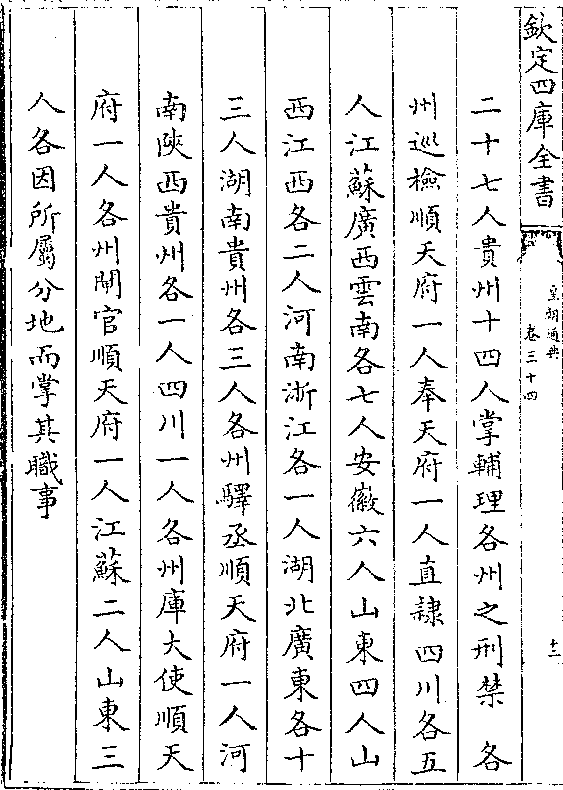 欽定四庫全書
皇朝通典
卷三十四
十二
二十七人貴州十四人掌輔理各州之刑禁 各
州巡檢順天府一人奉天府一人直隸四川各五
人江蘇廣西雲南各七人安徽六人山東四人山
西江西各二人河南浙江各一人湖北廣東各十
三人湖南貴州各三人各州驛丞順天府一人河
南陝西貴州各一人四川一人各州庫大使順天
府一人各州閘官順天府一人江蘇二人山東三
人各因所屬分地而掌其職事